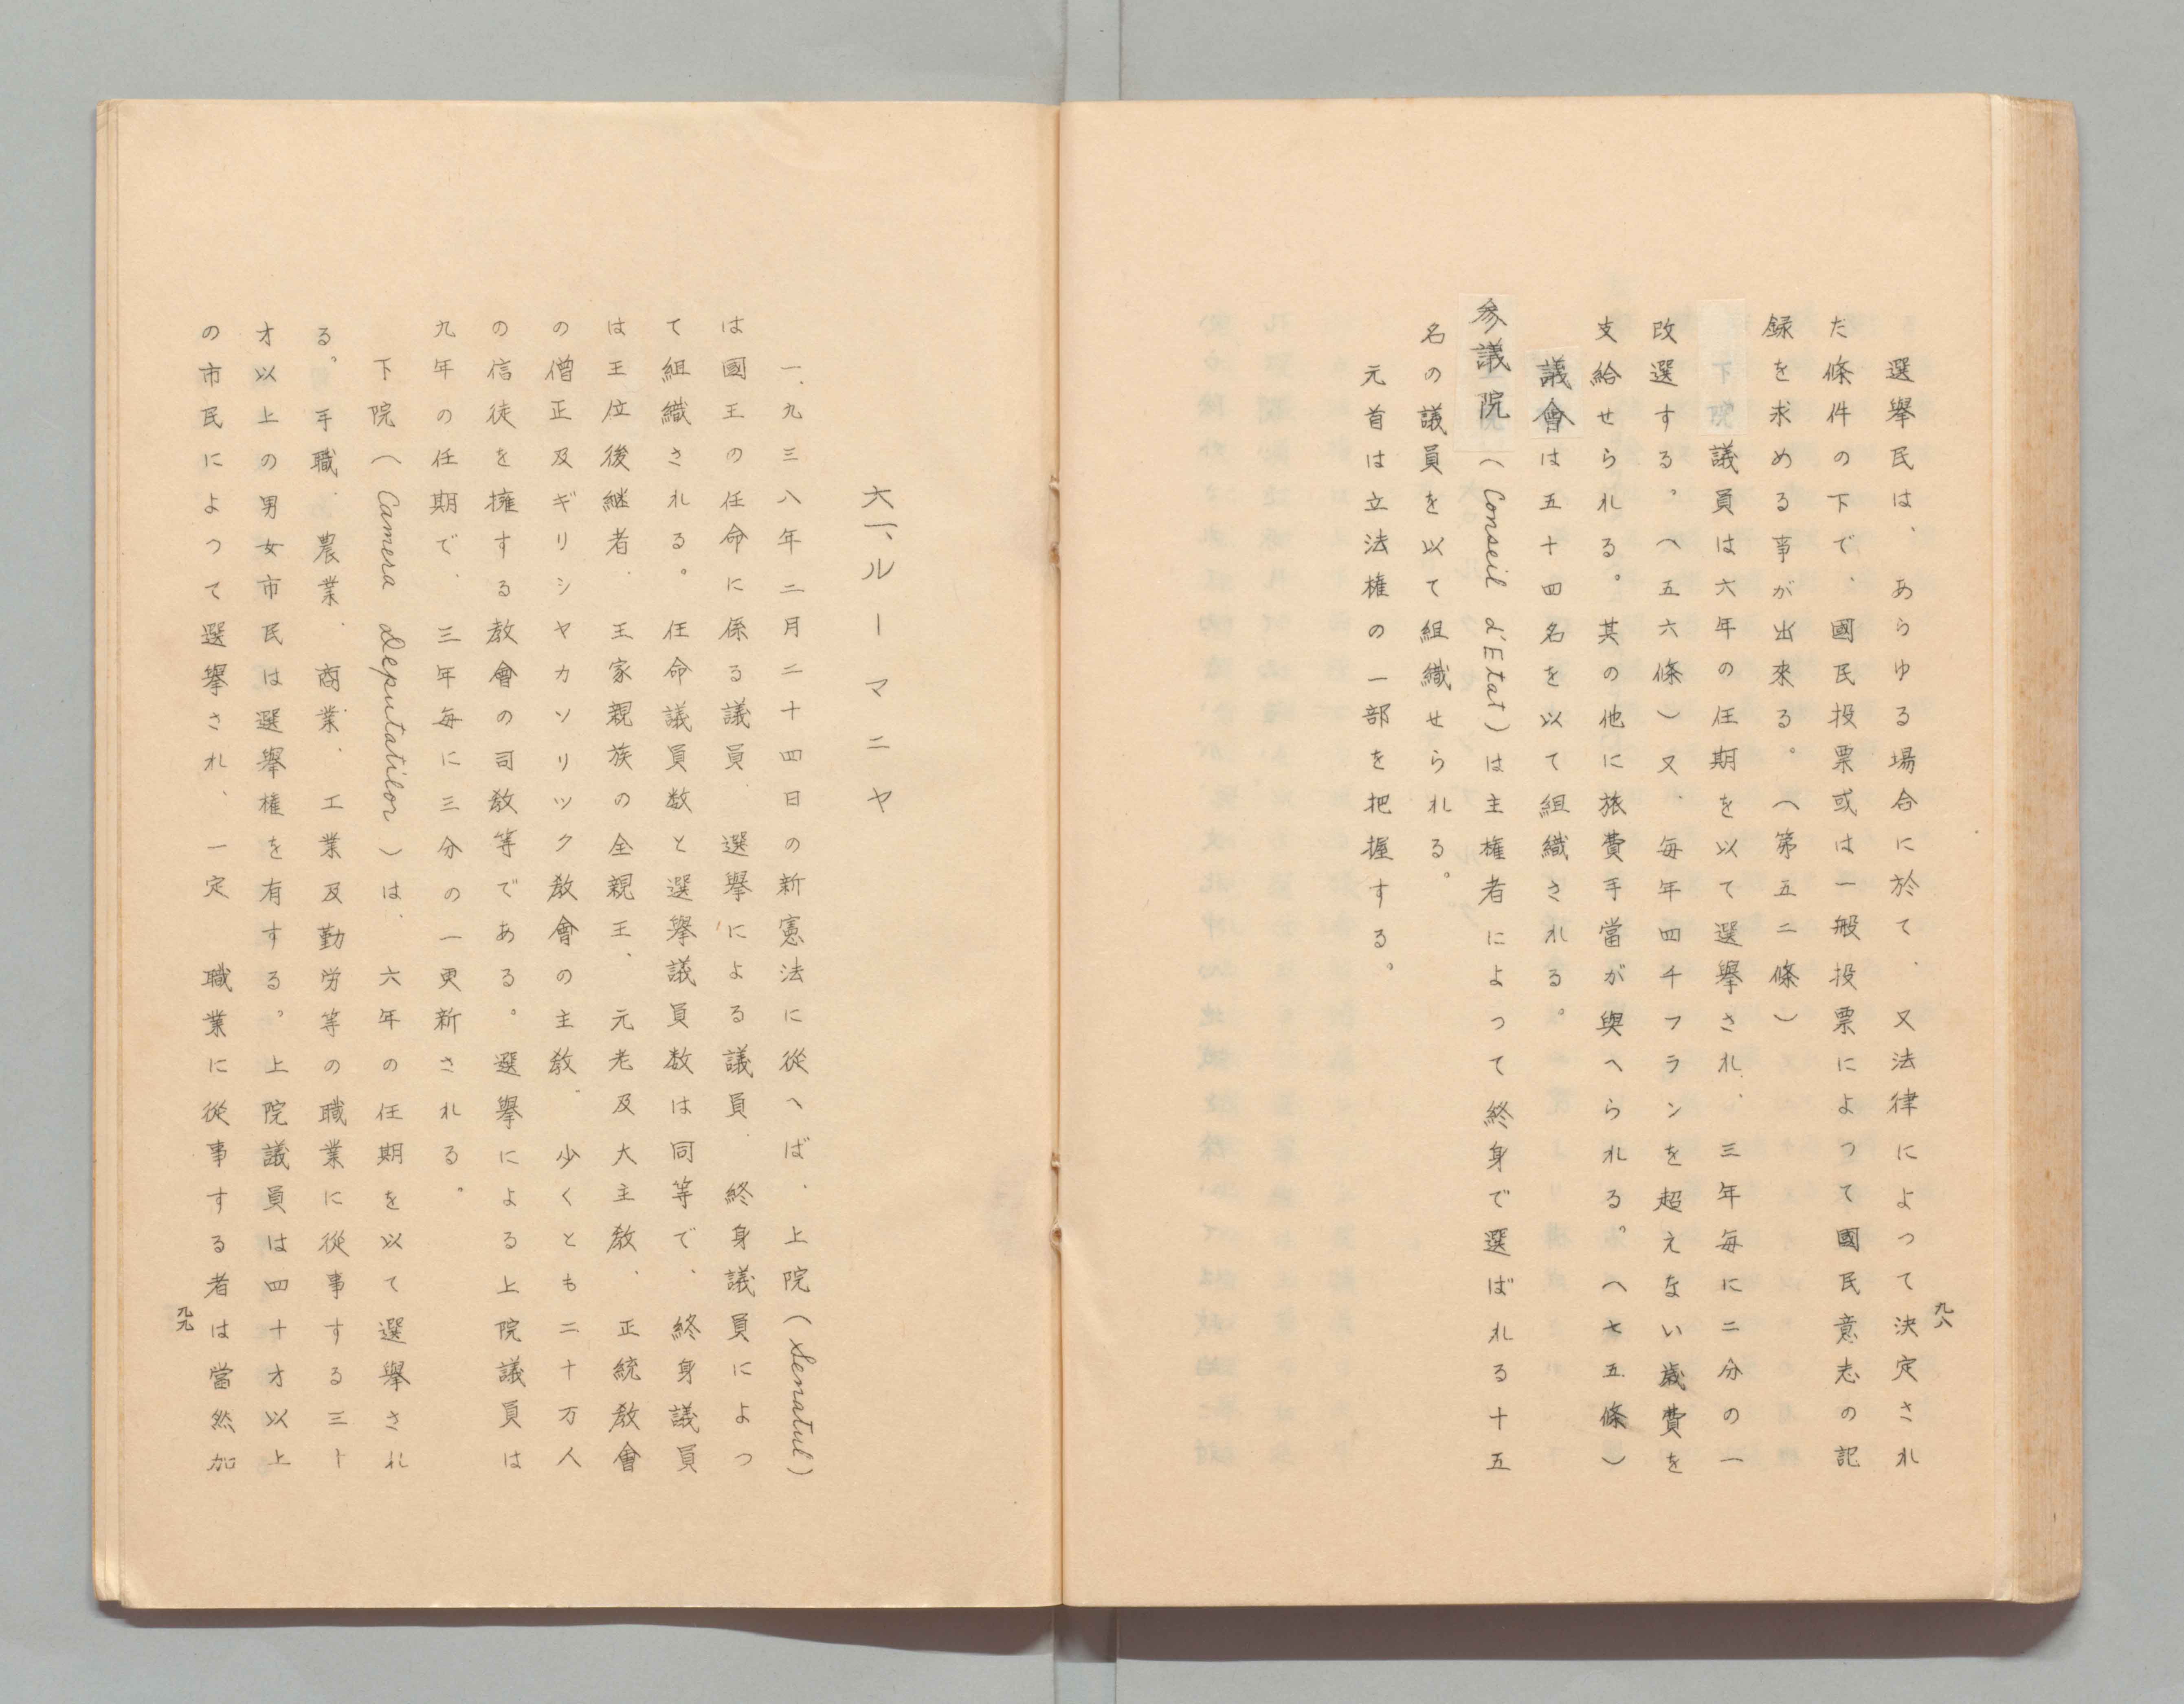 九八
選擧民は、あらゆる場合に於て、又法律によって決定され
た條件の下で、國民投票或は一般投票によって國民意志の記
録を求める事が出來る。（第五二條）
議員は六年の任期を以て選擧され、三年毎に二分の一
改選する。（五六條）又、毎年四千フランを超えない歳費を
支給せられる。其の他に旅費手當が與へられる。（七五條）
議會は五十四名を以て組織される。
参議院（Conseil d'Etat）は主権者によって終身で選ばれる十五
名の議員を以て組織せられる。
元首は立法権の一部を把握する。
六、ルーマニヤ
一、九三八年二月二十四日の新憲法に從へば、上院（Senatul）
は國王の任命に係る議員、選擧による議員、終身議員によっ
て組織される。任命議員数と選擧議員数は同等で、終身議員
は王位後継者、王家親族の全親王、元老及大主教、正統教會
の僧正及ギリシヤカソリック教會の主教、少くとも二十万人
の信徒を擁する教會の司教等である。選擧による上院議員は
九年の任期で、三年毎に三分の一更新される。
下院（Camera Deputatilor）は、六年の任期を以て選擧され
る。手職、農業、商業、工業及勤労等の職業に從事する三十
才以上の男女市民は選擧権を有する。上院議員は四十才以上
の市民によって選擧され、一定 職業に從事する者は當然加
九九